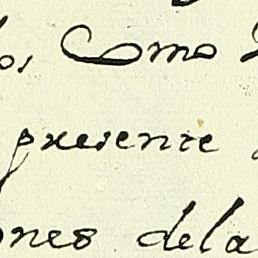 los, Como
presente
ones dela